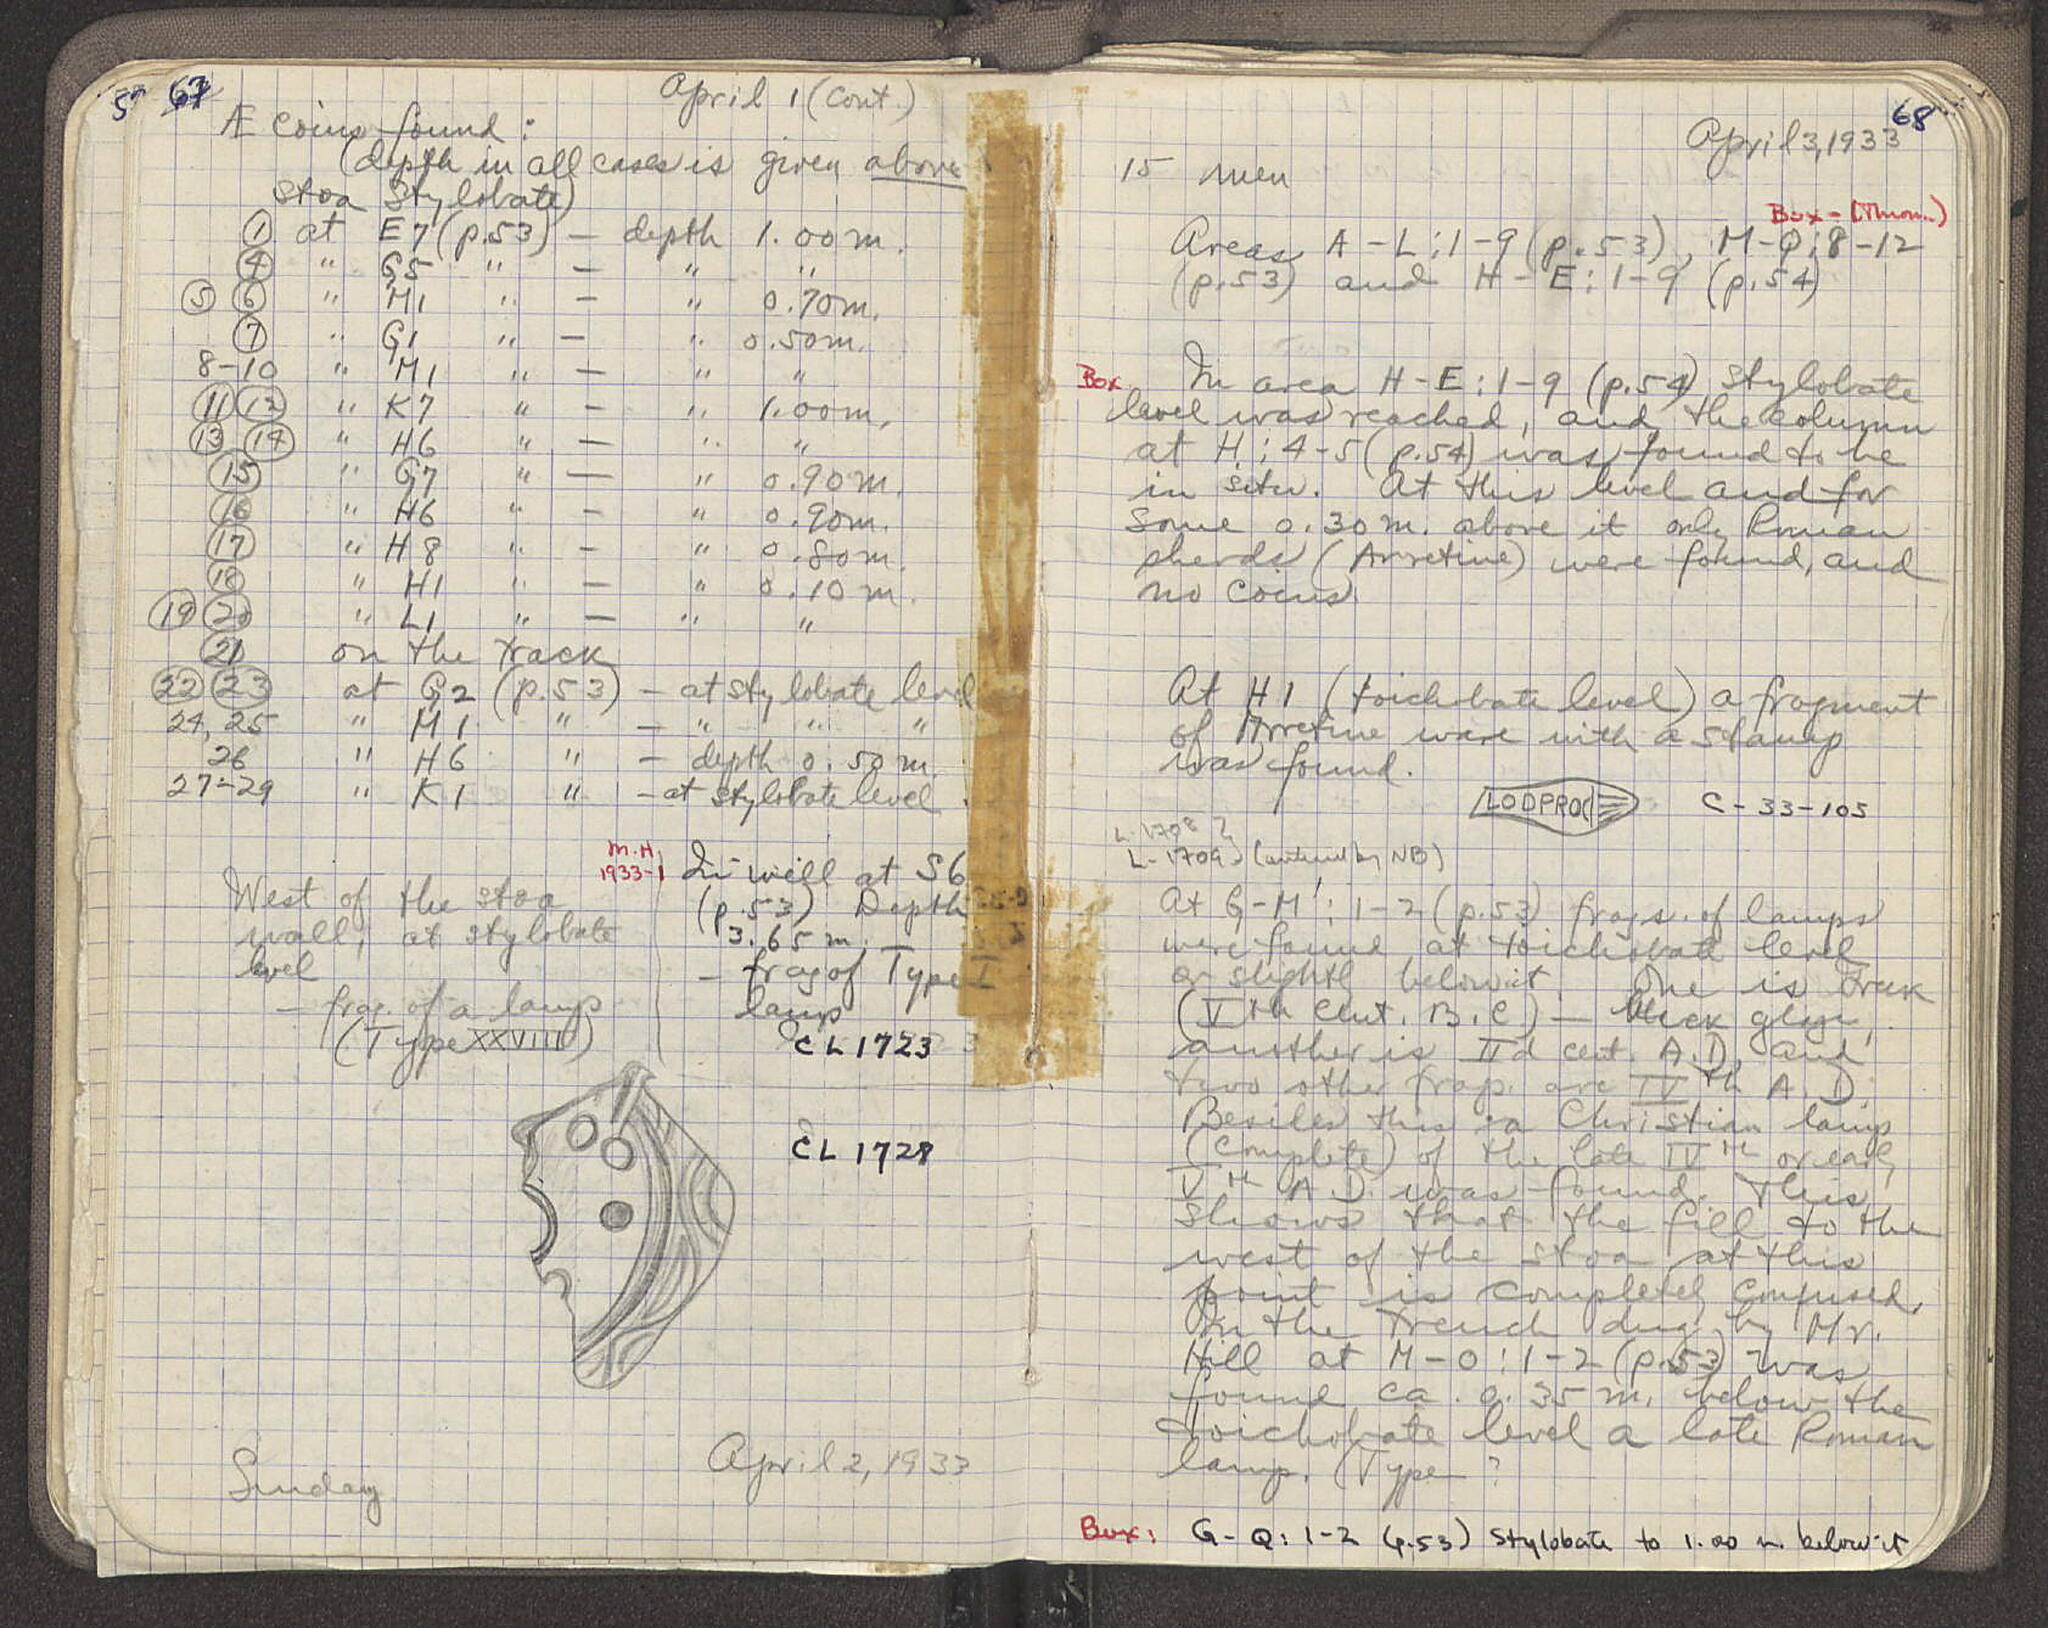 67
April 1 (cont.)
Æ coins found:
(depth in all cases is given above
stoa stylobate)
1 at E7 (p.53) — depth 1.00m.
4 " G5 " — " "
5 6 " M1 " — " 0.70m.
7 " G1 " — " 0.50m.
8-10 " M1 " — " "
11 12 " K7 " — " 1.00m.
13 14 " H6 " — " "
15 " G7 " — " 0.90m.
16 " H6 " — " 0.90m.
17 " H8 " — " 0.80m.
18 " H1 " — " 0.10m.
19 20 " L1 " — " "
21 on the track
22 23 at G2 (p.53) — at stylobate level
24, 25 " M1 " — " " "
26 " H6 " — depth 0.50m.
27-29 " K1 " — at stylobate level
West of the stoa
wall, at stylobate
level
— frag. of a lamp
(Type XXVIII)
M.H.
1933-1
In well at S6
(p.53) Depth
3.65m.
— frag of Type I
lamp
CL 1723
CL 1728
April 2, 1933
Sunday
68
April 3, 1933
15 men
Box - (Thron.)
Areas A-L:1-9 (p.53), M-Q:8-12
(p.53) and H-E:1-9 (p.54)
Box. In area H-E:1-9 (p.54) stylobate
level was reached, and the column
at H:4-5 (p.54) was found to be
in situ. At this level and for
some 0.30m. above it only Roman
sherds (Arretine) were found, and
no coins.
At H1 (toichobate level) a fragment
of Arretine ware with a stamp
was found.
LODPROC C-33-105
L-1708 }
L-1709 } (entered by NB)
At G-M':1-2 (p.53) frags. of lamps
were found at toichobate level
or slightly below it. One is Greek
(Vth Cent. B.C) — black glaze,
another is IId cent. A.D. and
two other frags. are IVth A.D.
Besides this a Christian lamp
(complete) of the late IVth or early
Vth A.D. was found. This
shows that the fill to the
west of the stoa at this
point is completely confused.
In the trench dug by Mr.
Hill at M-O:1-2 (p.53) was
found ca. 0.35m. below the
toichobate level a late Roman
lamp. (Type ?
Box: G-Q:1-2 (p.53) stylobate to 1.00 m. below it